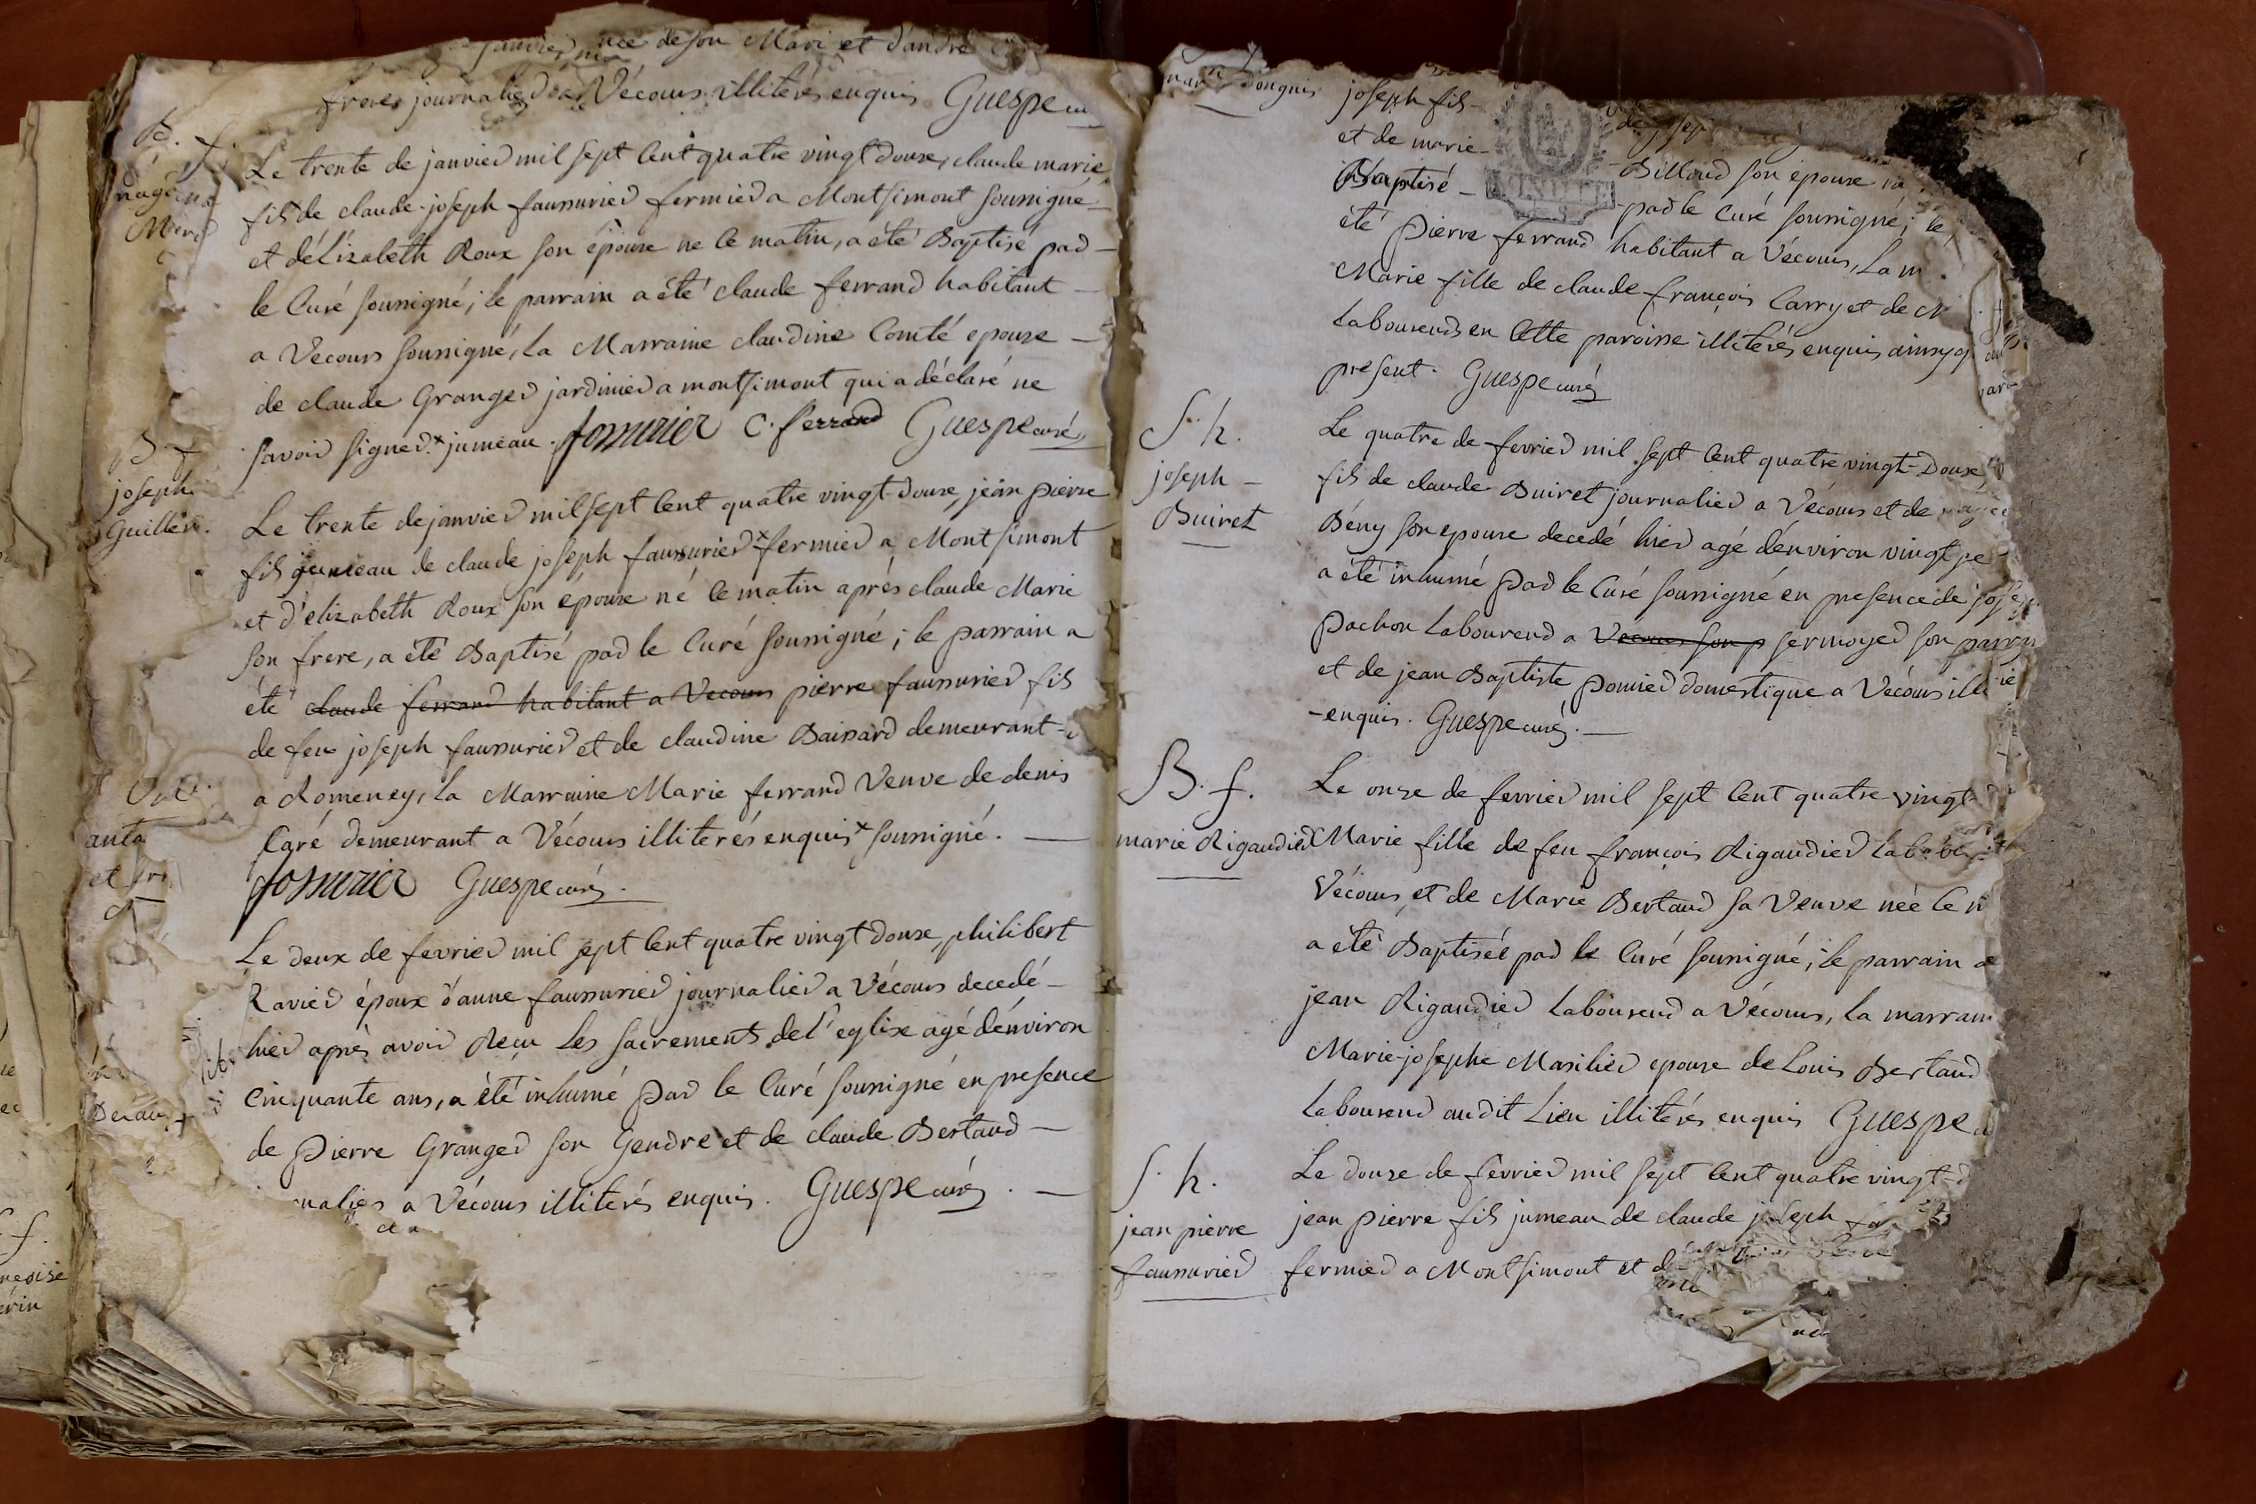 née de son Mari et d'andré
freres journaliers a Vécours illiterés enquis Guespe curé
B. f.
Le trente de janvier mil sept Cent quatre vingt douze, claude marie
fils de claude-joseph faussurier fermier a Montsimont soussigné
et d'élizabeth Roux son épouse né ce matin, a été Baptisé par
le Curé soussigné; le parrain a été claude ferrand habitant
a Vecours soussigné, la Marraine claudine Comté epouse
de claude Granger jardinier a montsimont qui a déclaré ne
savoir signer. x jumeau. fossurier C. ferrand Guespe curé
B. f
joseph
Guillerm.
Le trente de janvier mil sept Cent quatre vingt-douze, jean pierre
fils jumeau de claude joseph faussurier x fermier a Montsimont
et d'elizabeth Roux son epouse né ce matin après claude Marie
son frere, a été Baptisé par le Curé soussigné; le parrain a
été claude ferrand habitant a Vecours pierre faussurier fils
de feu joseph faussurier et de claudine Baissard demeurant
a Romeney, la Marraine Marie ferrand Veuve de denis
Carré demeurant a Vécours illiterés enquis x soussigné.
fossurier Guespe curé.
Le deux de fevrier mil sept Cent quatre vingt douze, philibert
Ravier époux d'anne faussurier journalier a Vécours decedé
hier après avoir Reçu les sacrements de l'eglise agé d'énviron
Cinquante ans, a été inhumé par le Curé soussigné en presence
de Pierre Granger son Gendre et de claude Bertaud
a Vécours illiterés enquis. Guespe curé.
joseph fils
et de marie
Billoud son épouse
Baptisé par le Curé soussigné; le
été Pierre ferrand habitant a Vécours, la m
Marie fille de claude françois Carry et de
laboureurs en Cette paroisse illiterés enquis
present. Guespe curé
S. h.
joseph
Buiret
Le quatre de fevrier mil sept Cent quatre vingt-Douze,
fils de claude Buiret journalier a Vécours et de
Bény son epouse decedé hier agé d'énviron vingt
a été inhumé par le Curé soussigné en presence de
Pachon laboureur a Vecours son p sermoyer son
et de jean Baptiste Pomier domestique a Vécours
enquis. Guespe curé.
B. f.
marie Rigaudier
Le onze de fevrier mil sept Cent quatre-vingt
Marie fille de feu françois Rigaudier
Vécours et de Marie Bertaud sa Veuve née le
a été Baptisée par le Curé soussigné; le parrain a
jean Rigaudier laboureur a Vécours, la marrain
Marie-josephe Masilier epouse de Louis Bertaud
laboureur audit Lieu illiterés enquis Guespe
S. h.
jean pierre
faussurier
Le douze de fevrier mil sept Cent quatre vingt-d
jean pierre fils jumeau de claude joseph
fermier a Montsimont et